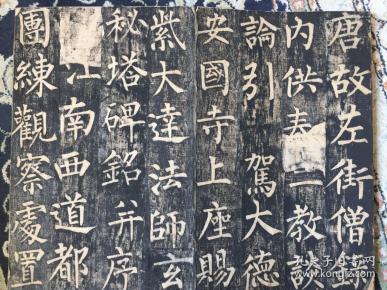 唐故左街僧
內供奉三教
論引 駕大德
安國寺上座賜
紫大達法師玄
秘塔碑銘并序
江南西道都
團練觀察處置